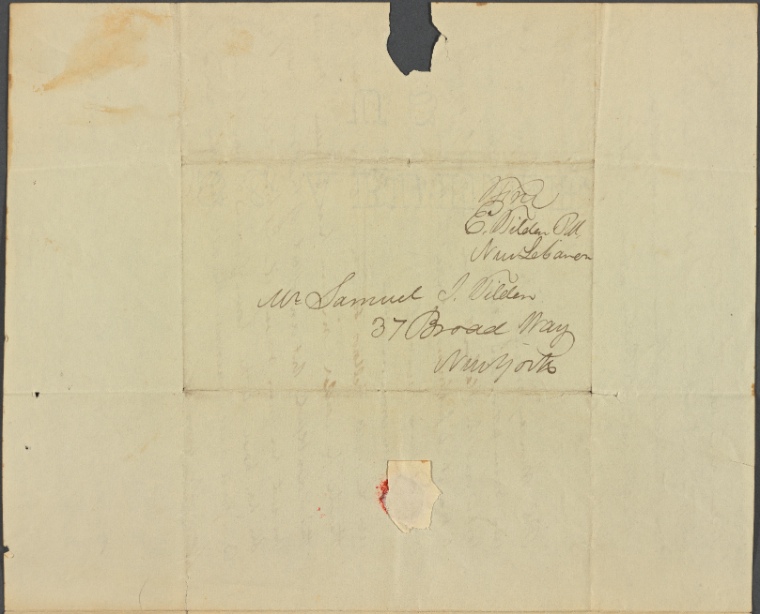 Free
E. Tilden P.M.
New Lebanon
Mr Samuel J. Tilden
37 Broad Way
New York